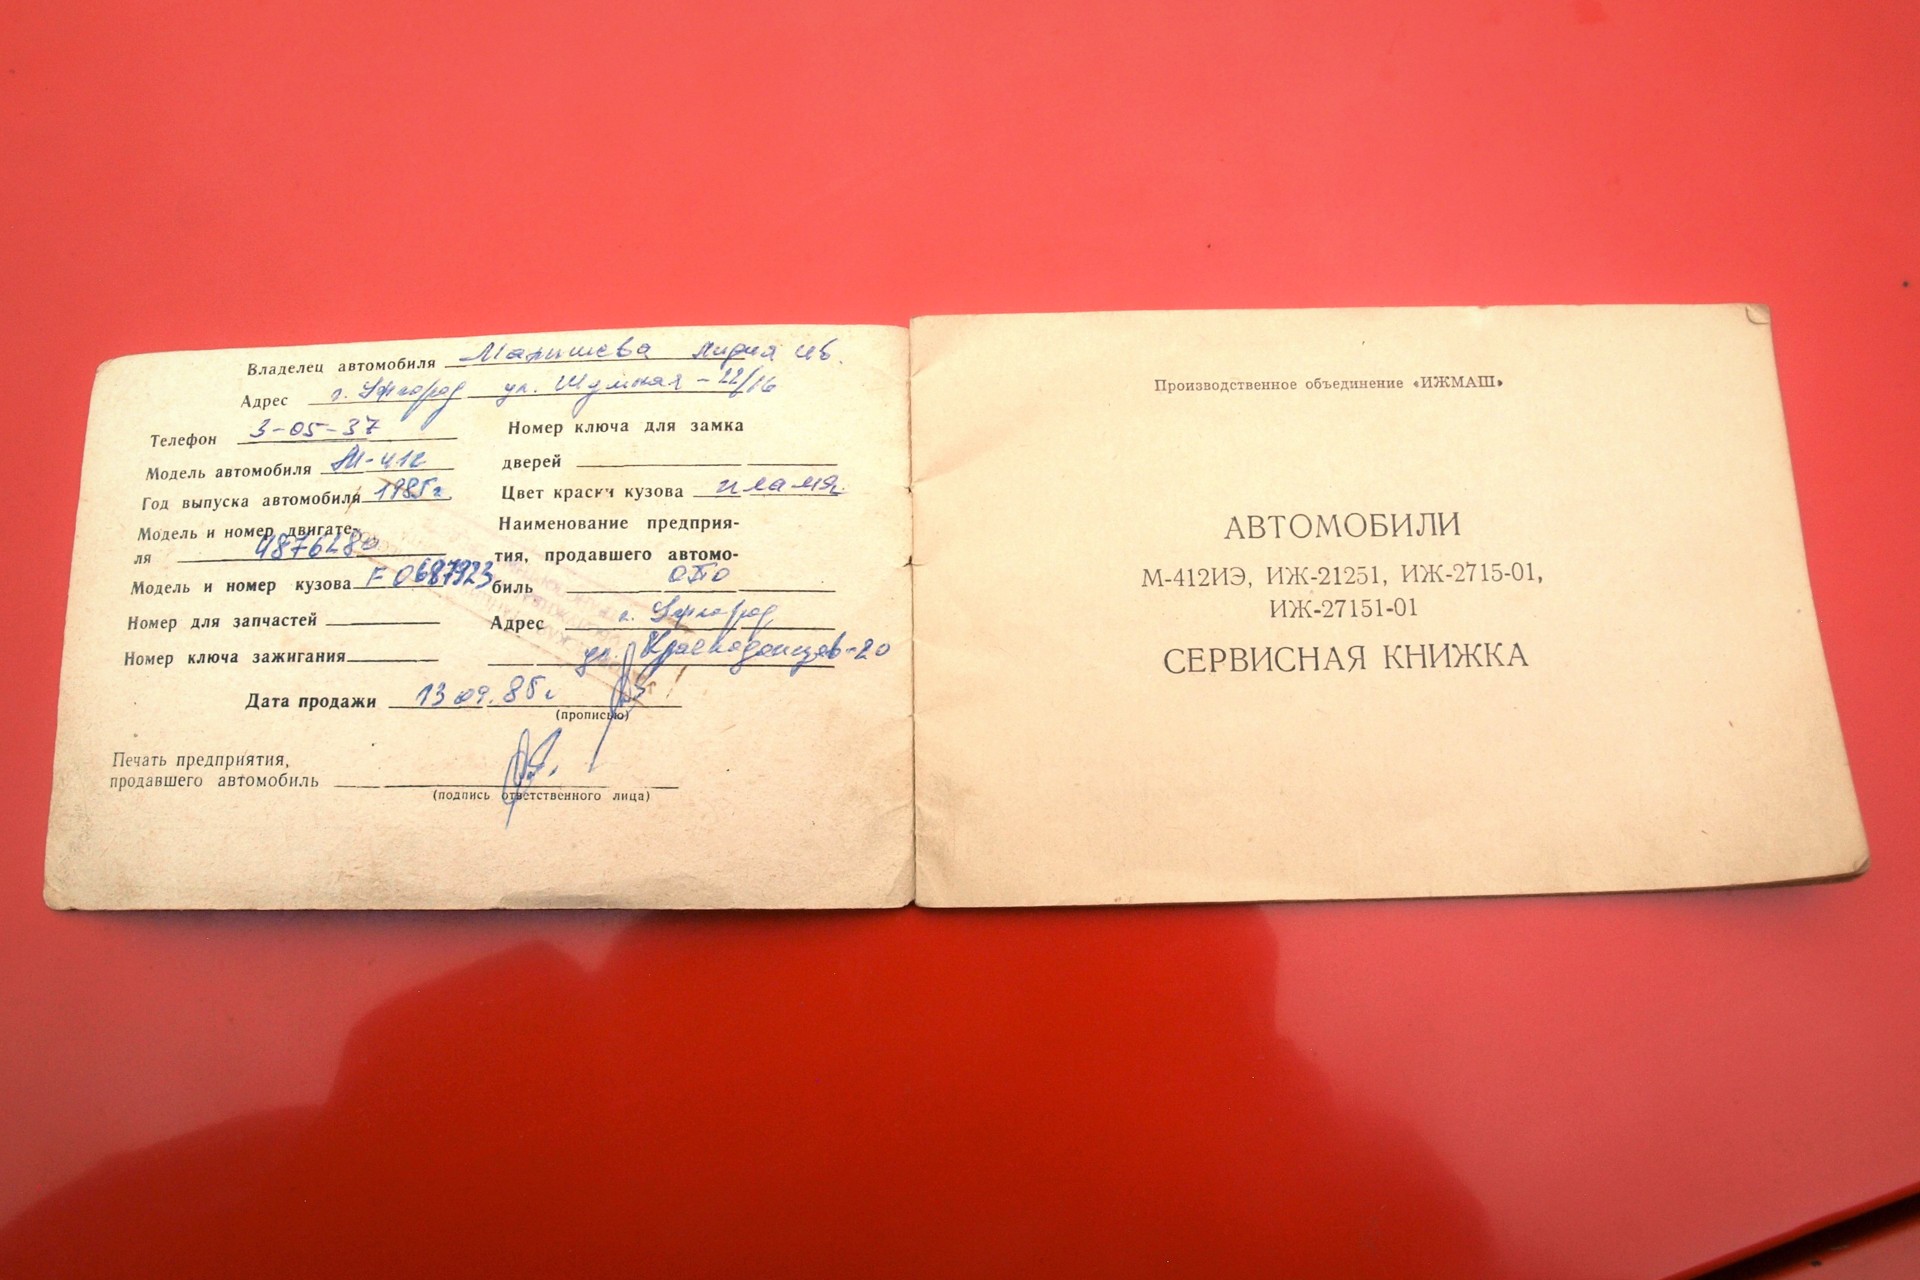 Владелец автомобиля Марышева Мария Ив.
Адрес г. Ужгород ул. Шумная - 22/16
Телефон 3-05-37
Модель автомобиля М-412
Год выпуска автомобиля 1985г.
Модель и номер двигате-
ля 4876280
Модель и номер кузова F0687923
Номер для запчастей
Номер ключа зажигания
Номер ключа для замка
дверей
Цвет краски кузова пламя
Наименование предприя-
тия, продавшего автомо-
биль ОТО
Адрес г. Ужгород
ул. Краснодонцев-20
Дата продажи 13 09. 85г
(прописью)
Печать предприятия,
продавшего автомобиль
(подпись ответственного лица)
Производственное объединение «ИЖМАШ»
АВТОМОБИЛИ
М-412ИЭ, ИЖ-21251, ИЖ-2715-01,
ИЖ-27151-01
СЕРВИСНАЯ КНИЖКА